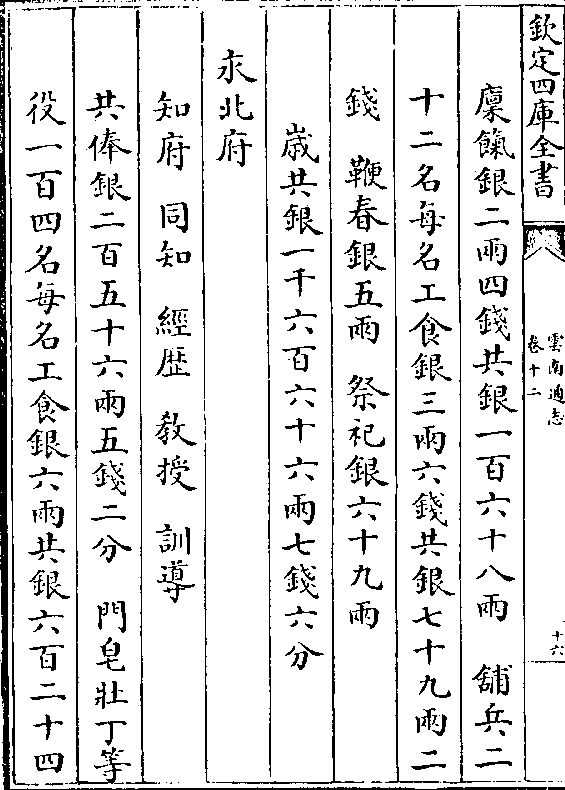 欽定四庫全書
雲南通志
卷十二
十六
廩餼銀二兩四錢共銀一百六十八兩　舖兵二
十二名每名工食銀三兩六錢共銀七十九兩二
錢　鞭春銀五兩　祭祀銀六十九兩
歲共銀一千六百六十六兩七錢六分
永北府
知府　同知　經歷　教授　訓導
共俸銀二百五十六兩五錢二分　門皂壯丁等
役一百四名每名工食銀六兩共銀六百二十四